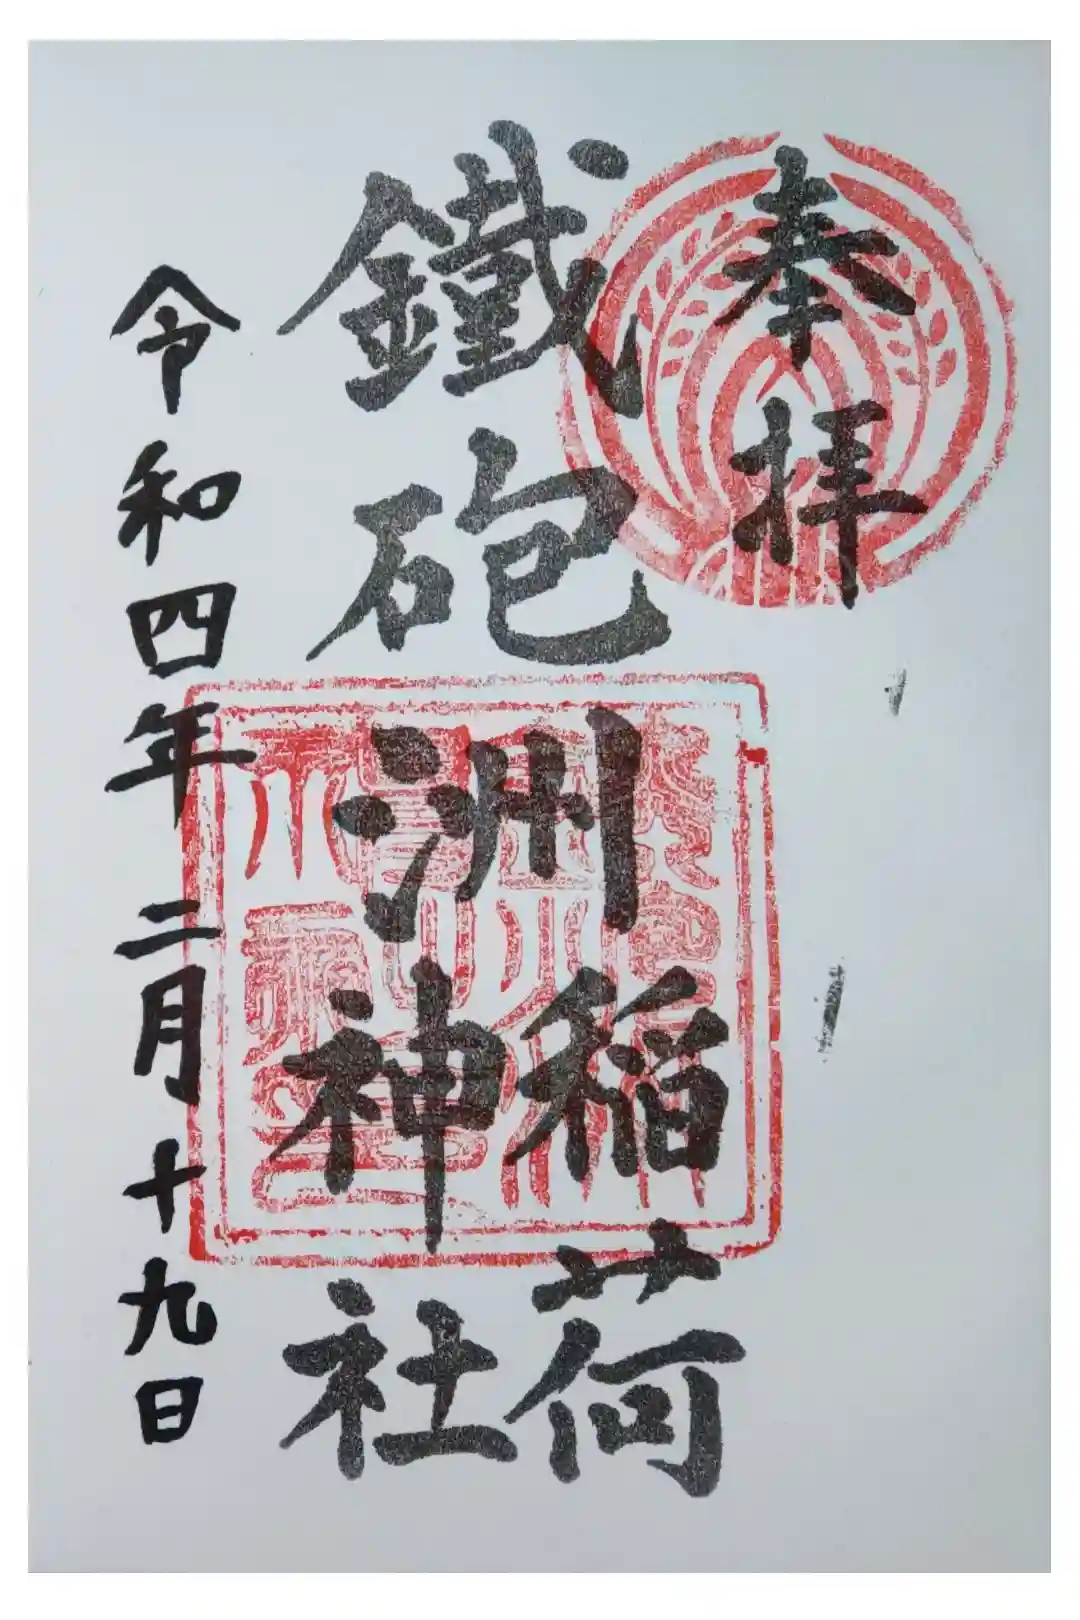 奉拝
鐵砲洲稲荷神社
令和四年二月十九日